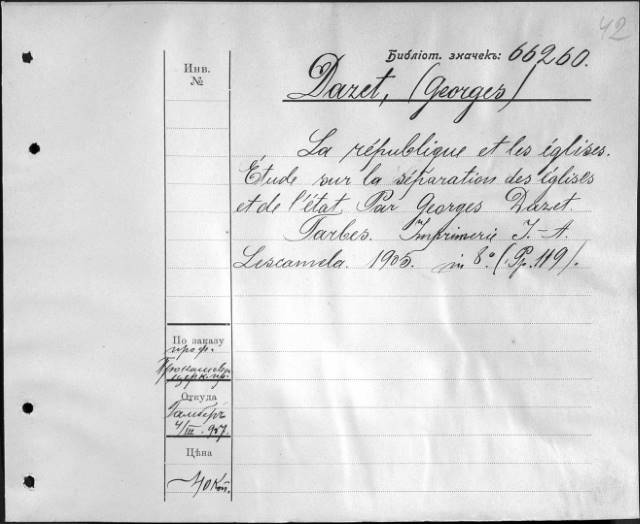 42
Библіот. значекъ: 66260.
Инв.
№
Dazet, (Georges)
La république et les églises.
Étude sur la séparation des églises
et de l'état. Par Georges Dazet.
Tarbes. Imprimerie J.-A.
Lescamela. 1905. in 8°. (Pp. 119).
По заказу
проф.
церк. пр.
Откуда
4/III. 907.
Цѣна
40 коп.